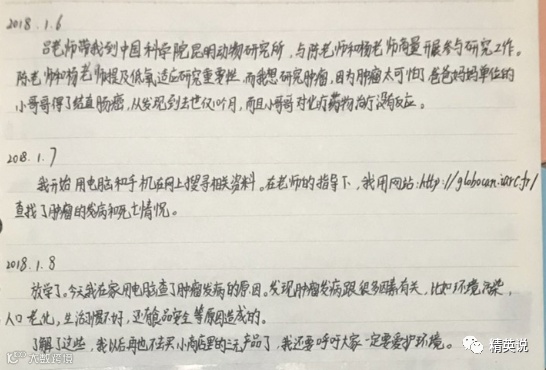 2018.1.6
吕老师带我到中国科学院昆明动物研究所,与陈老师和杨老师商量开展参与研究工作。
陈老师和杨老师提及低氧适应研究重要性,而我想研究肿瘤,因为肿瘤太可怕了,爸爸妈妈单位的
小哥哥得了结直肠癌,从发现到去世仅10个月,而且小哥哥对化疗药物治疗没有反应。
2018.1.7
我开始用电脑和手机在网上搜寻相关资料。在老师的指导下,我用网站:http://globocan.iarc.fr/
查找了肿瘤的发病和死亡情况。
2018.1.8
放学了。今天我在家用电脑查了肿瘤发病的原因。发现肿瘤发病跟很多因素有关,比如环境污染,
人口老化,生活习惯不好,还有食品安全等原因造成的。
了解了这些,我以后再也不去买小商店里的三元产品了,我还要呼吁大家一定要爱护环境。
大数跨境
精英说